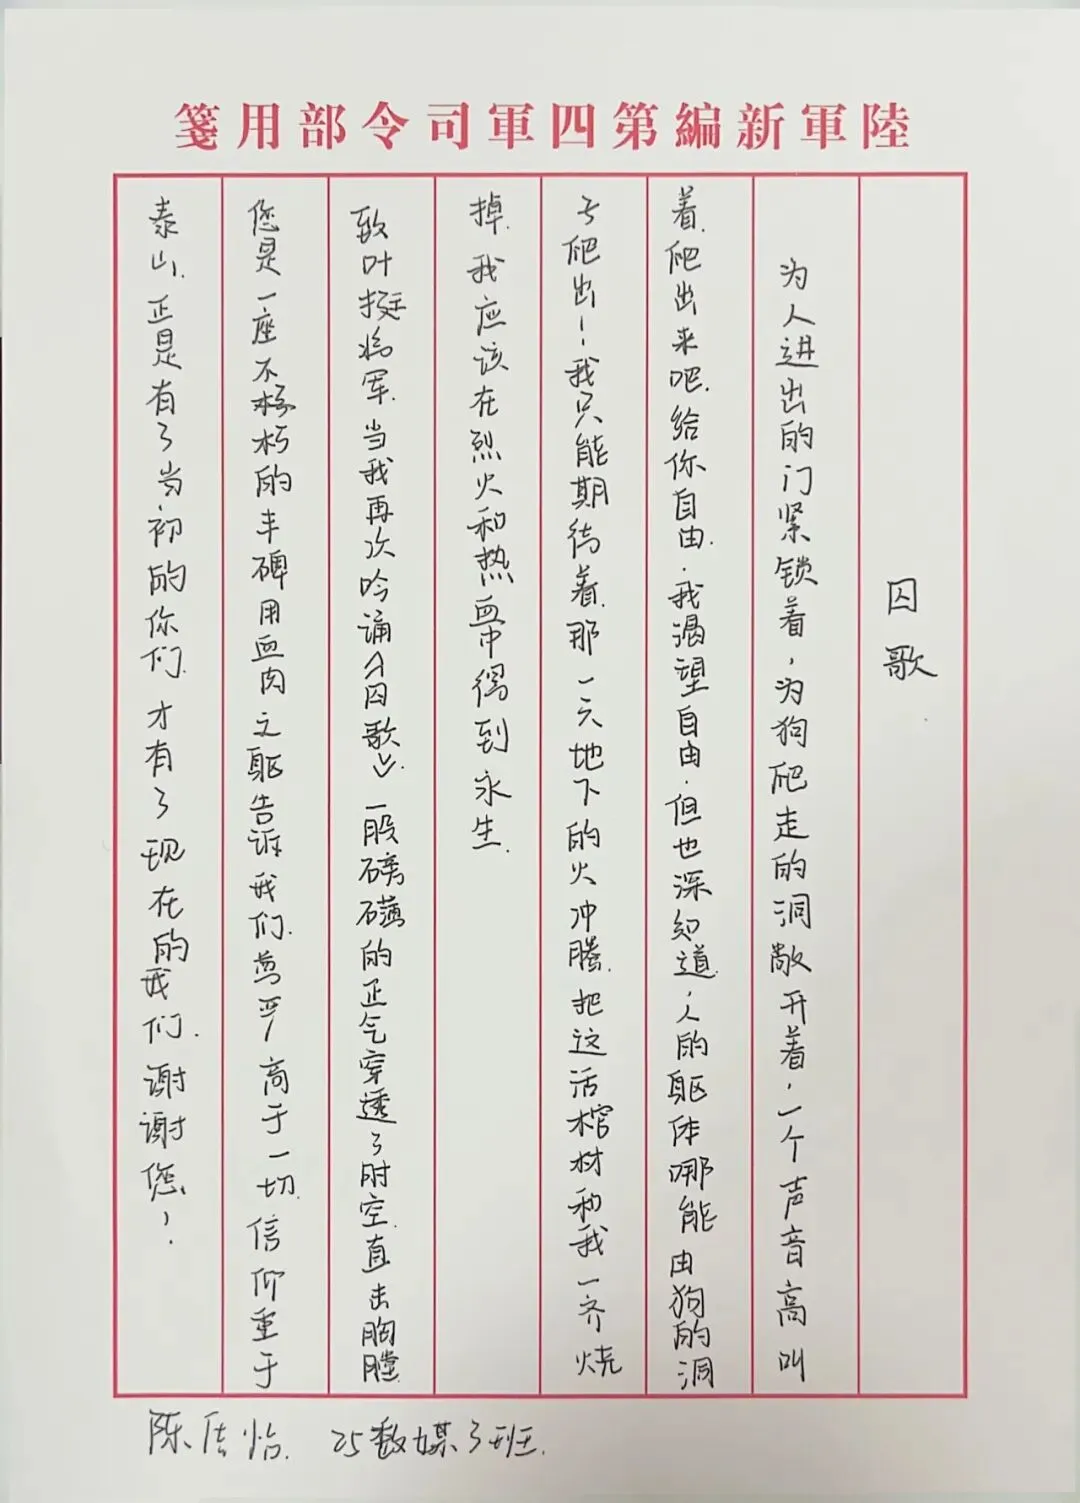 陸軍新編第四軍司令部用箋
囚歌
为人进出的门紧锁着，为狗爬走的洞敞开着，一个声音高叫
着.爬出来吧.给你自由.我渴望自由.但也深知道，人的躯体哪能由狗的洞
子爬出！我只能期待着.那一天地下的火冲腾.把这活棺材和我一齐烧
掉.我应该在烈火和热血中得到永生.
致叶挺将军.当我再次吟诵《囚歌》.一股磅礴的正气穿透了时空.直击胸膛
您是一座不朽的丰碑用血肉之躯告诉我们.尊严高于一切.信仰重于
泰山.正是有了当初的你们.才有了现在的我们.谢谢您！
陈佳怡. 25数媒3班.